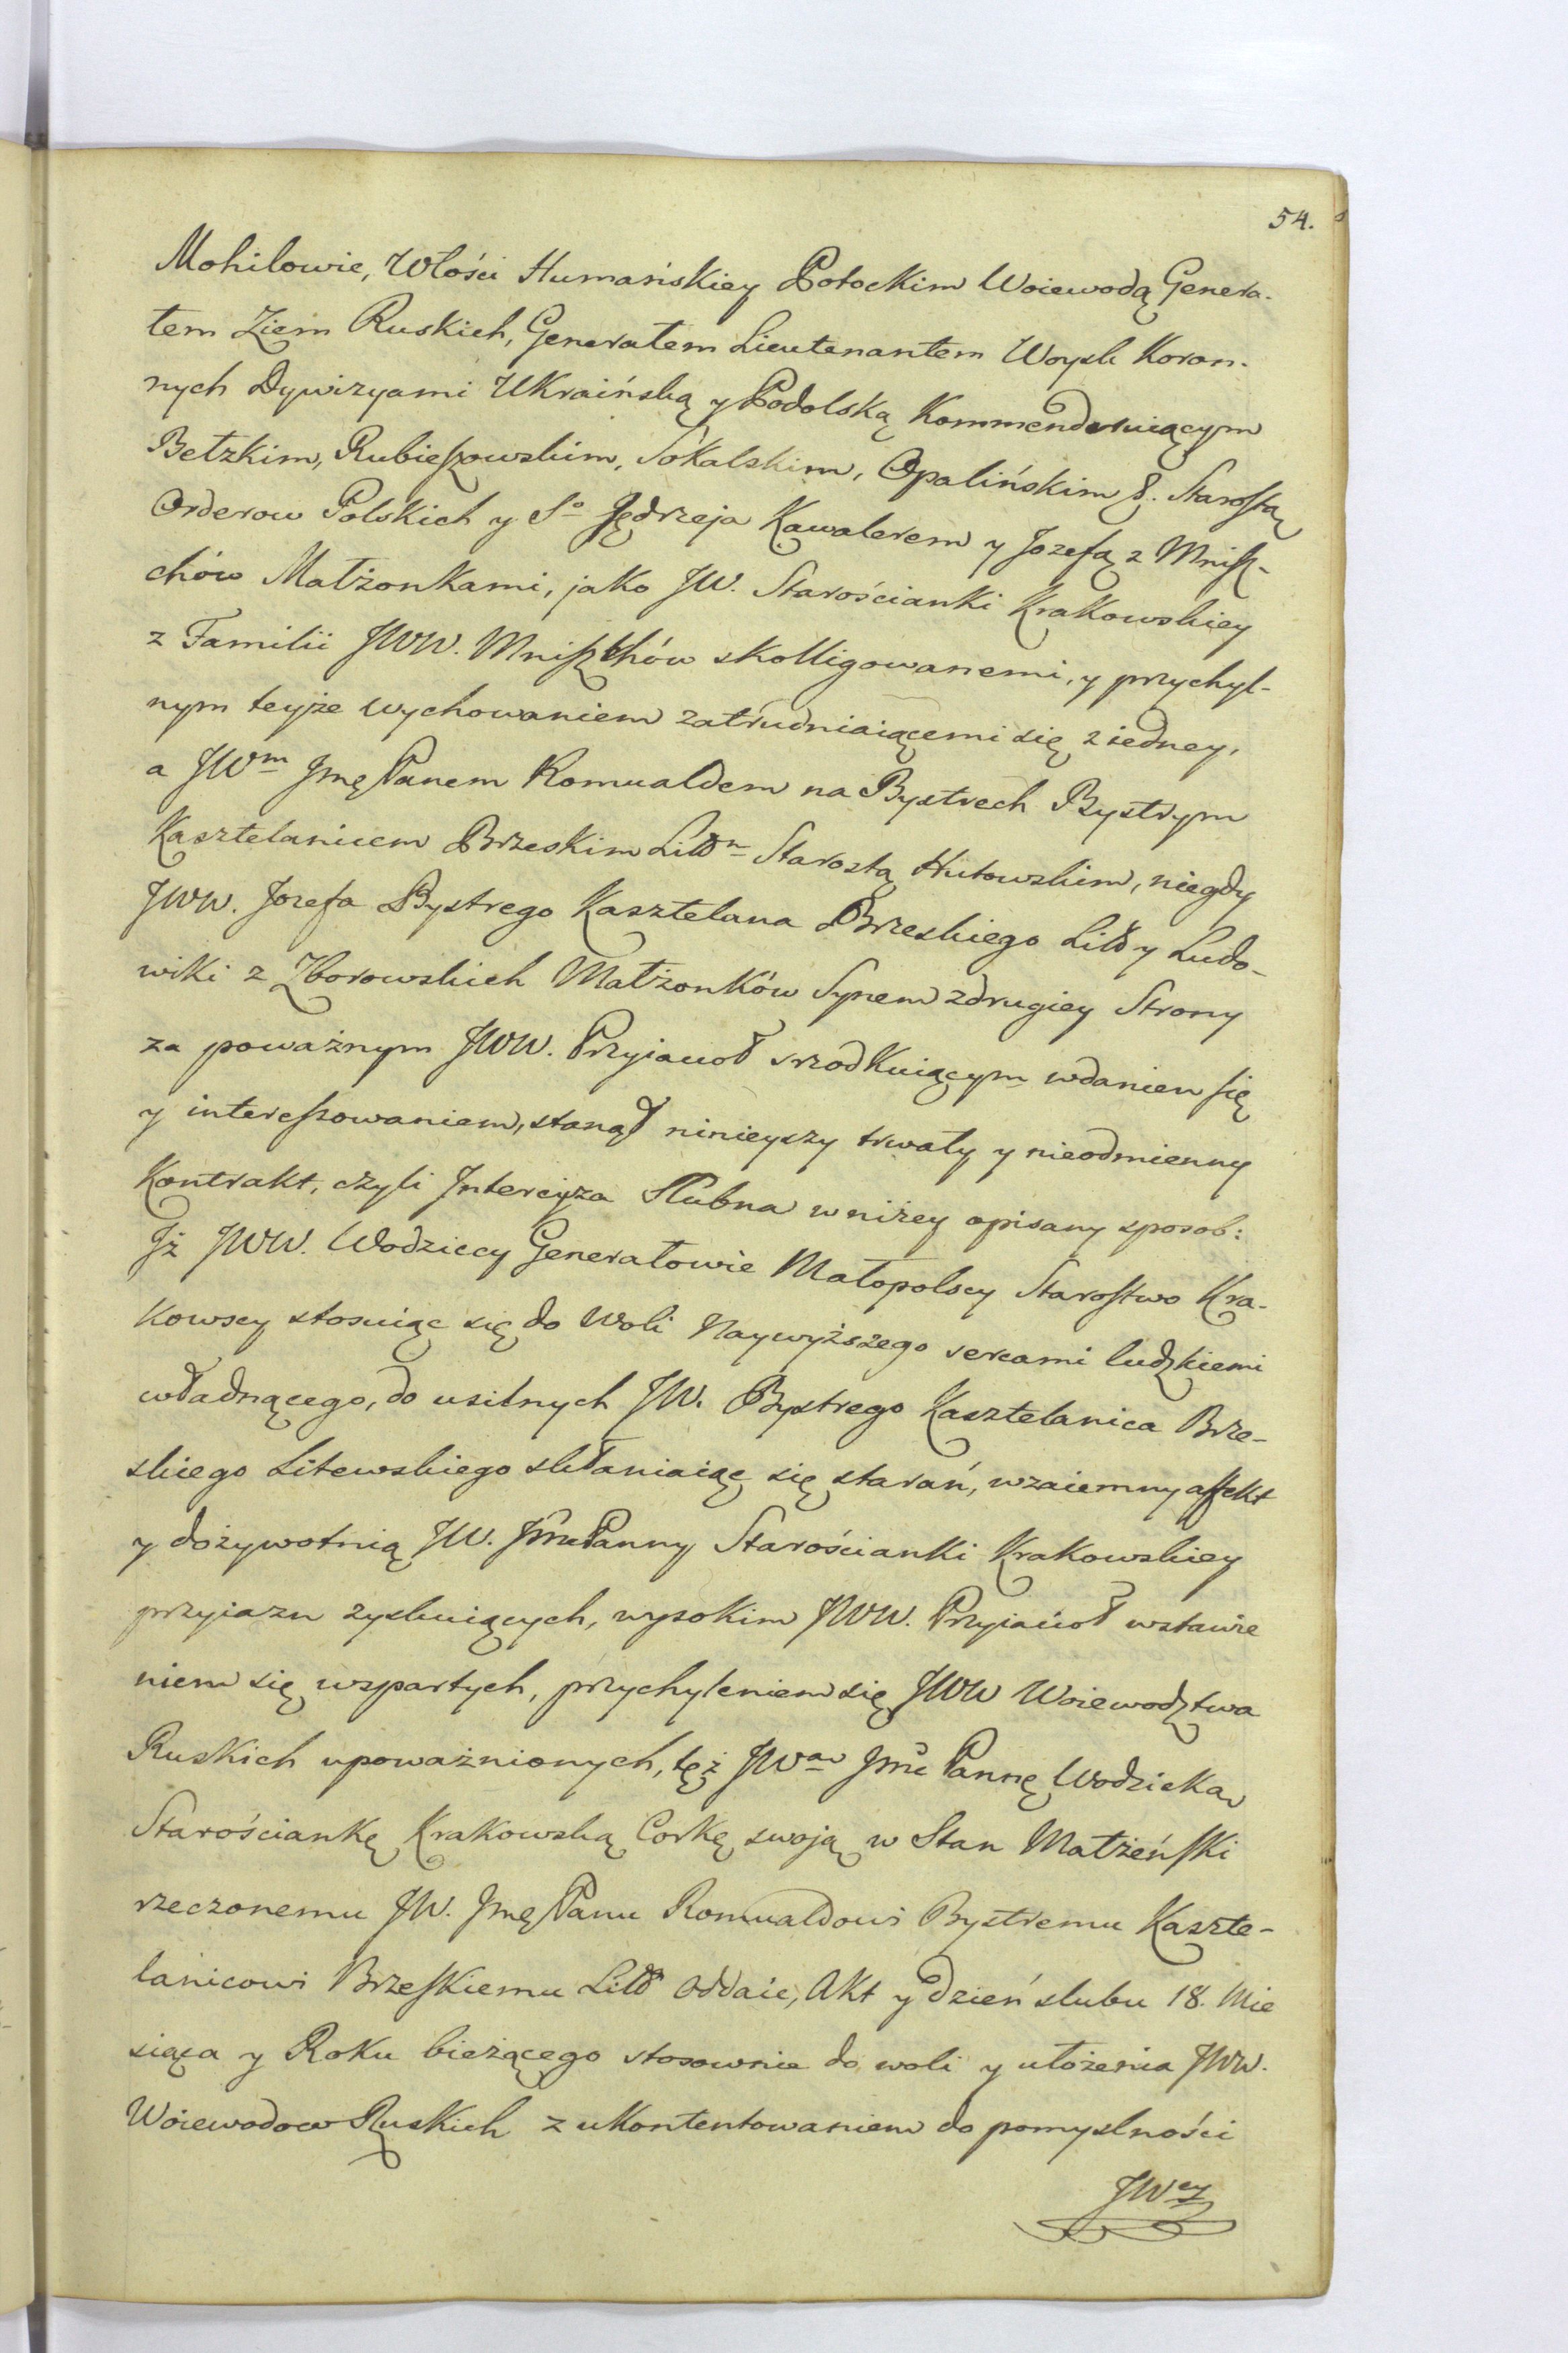 54.
Mohilowie, Włości Humańskiey Potockim Woiewodą Genera-
łem Ziem Ruskich, Generałem Lieutenantem Woysk Koron-
nych Dywizyami Ukraińską y Podolską Kommenderuiącym
Bełzkim, Rubieszowskim, Sokalskim, Opalińskim &. Starostą
Orderow Polskich y So Jędrzeja Kawalerem y Jozefą z Mnisz-
chów Małżonkami, jako JW. Starościanki Krakowskiey
z Familii JWW. Mniszchów skolligowanemi, y przychyl-
nym teyże wychowaniem zatrudniaiącemi się z iedney,
a JWm Jmę Panem Romualdem na Bystrech Bystrym
Kasztelanicem Brzeskim Littn Starostą Hutowskim, niegdy
JWW. Jozefa Bystrego Kasztelana Brzeskiego Litt y Ludo-
wiki z Zborowskich Małżonków Synem z drugiey Strony
za poważnym JWW. Przyiacioł srzodkuiącym wdaniem się
y interessowaniem, stanął ninieyszy trwały y nieodmienny
Kontrakt, czyli Intercyza Slubna w niżey opisany sposob:
Iż JWW. Wodziccy Generałowie Małopolscy Starostwo Kra-
kowscy stosuiąc się do Woli Naywyższego sercami ludzkiemi
władnącego, do usilnych JW. Bystrego Kasztelanica Brze-
skiego Litewskiego skłaniaiąc się starań, wzaiemny affekt
y dożywotnią JW. Jmć Panny Starościanki Krakowskiey
przyiazn zyskuiących, wysokim JWW. Przyiacioł wstawie
niem się wspartych, przychyleniem się JWW Woiewodztwa
Ruskich upoważnionych, tęż JWan Jmć Pannę Wodzicką
Starościankę Krakowską Corkę swoją w Stan Małżeński
rzeczonemu JW. Jmę Panu Romualdowi Bystremu Kaszte-
lanicowi Brzeskiemu Litt oddaie, Akt y dzień slubu 18. Mie
siąca y Roku bieżącego stosownie do woli y ułożenia JWW.
Woiewodow Ruskich z ukontentowaniem do pomyslności
JWey